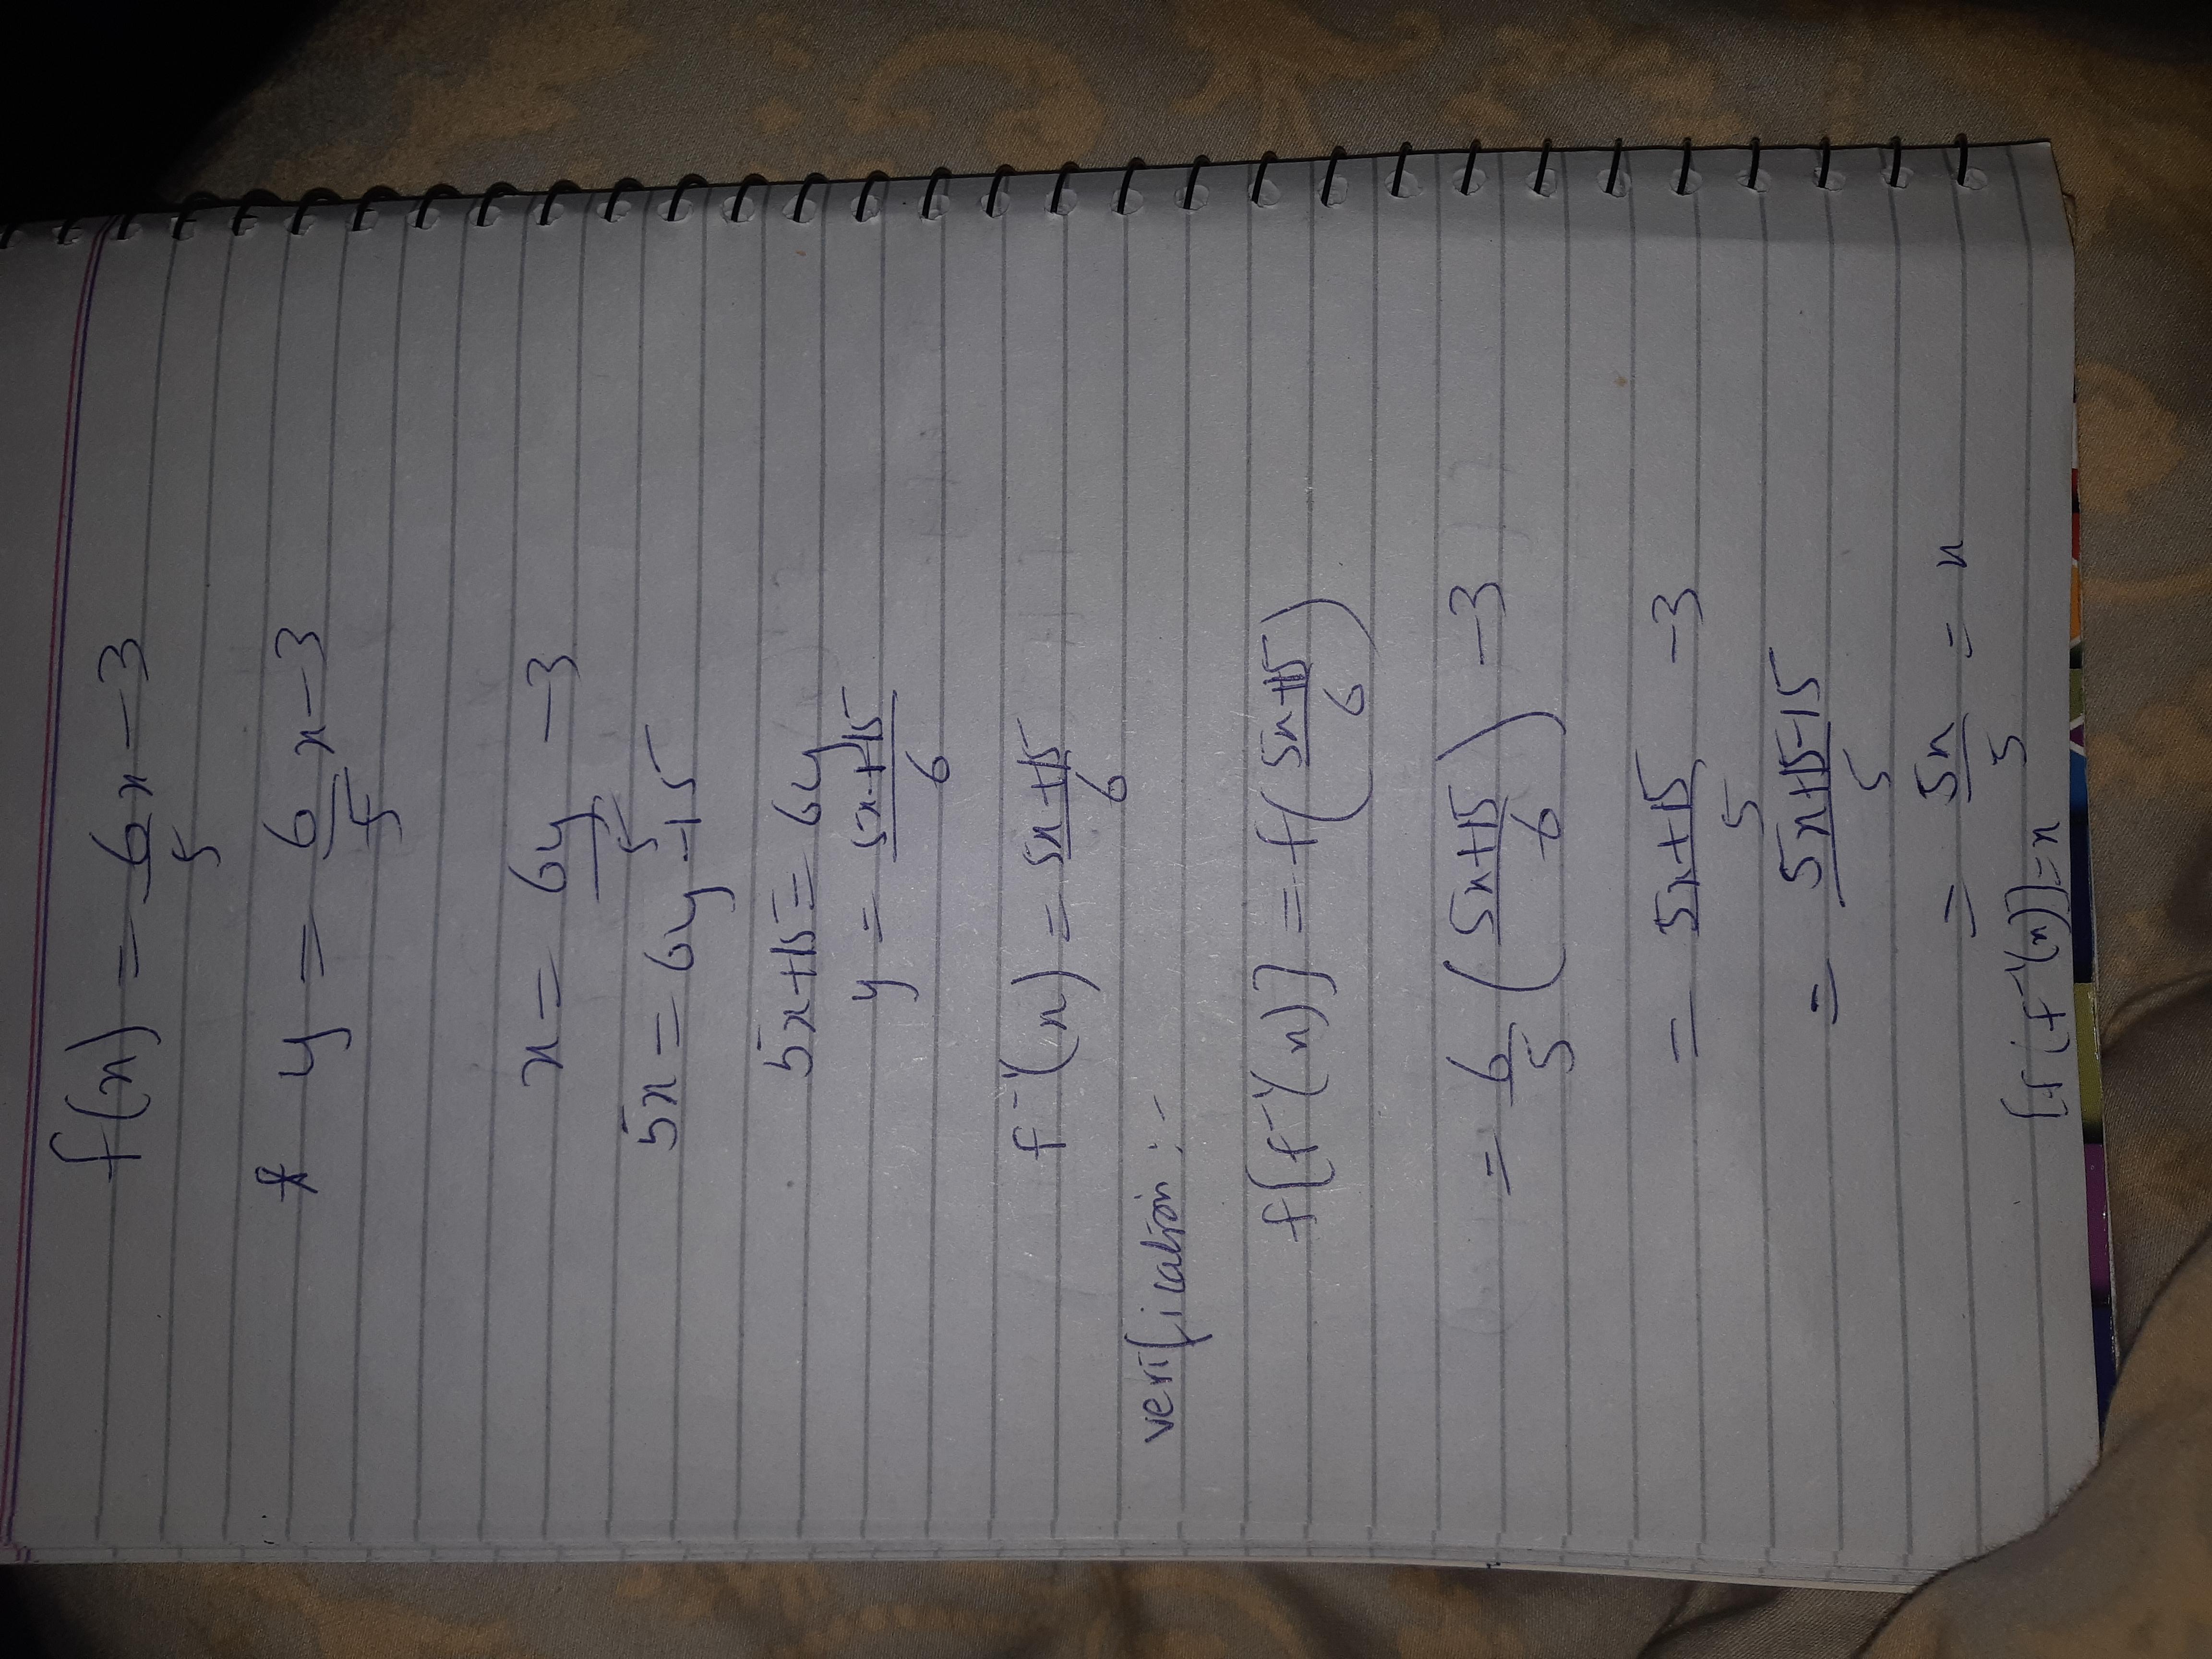 f(x) = 6/5 x - 3
* y = 6/5 x - 3
x = 6y/5 - 3
5x = 6y - 15
5x + 15 = 6y
y = 5x+15/6
f⁻¹(x) = 5x+15/6
verification :-
f[f⁻¹(x)] = f(5x+15/6)
= 6/5 (5x+15/6) - 3
= 5x+15/5 - 3
= 5x+15-15/5
= 5x/5 = x
[f(f⁻¹(x)] = x